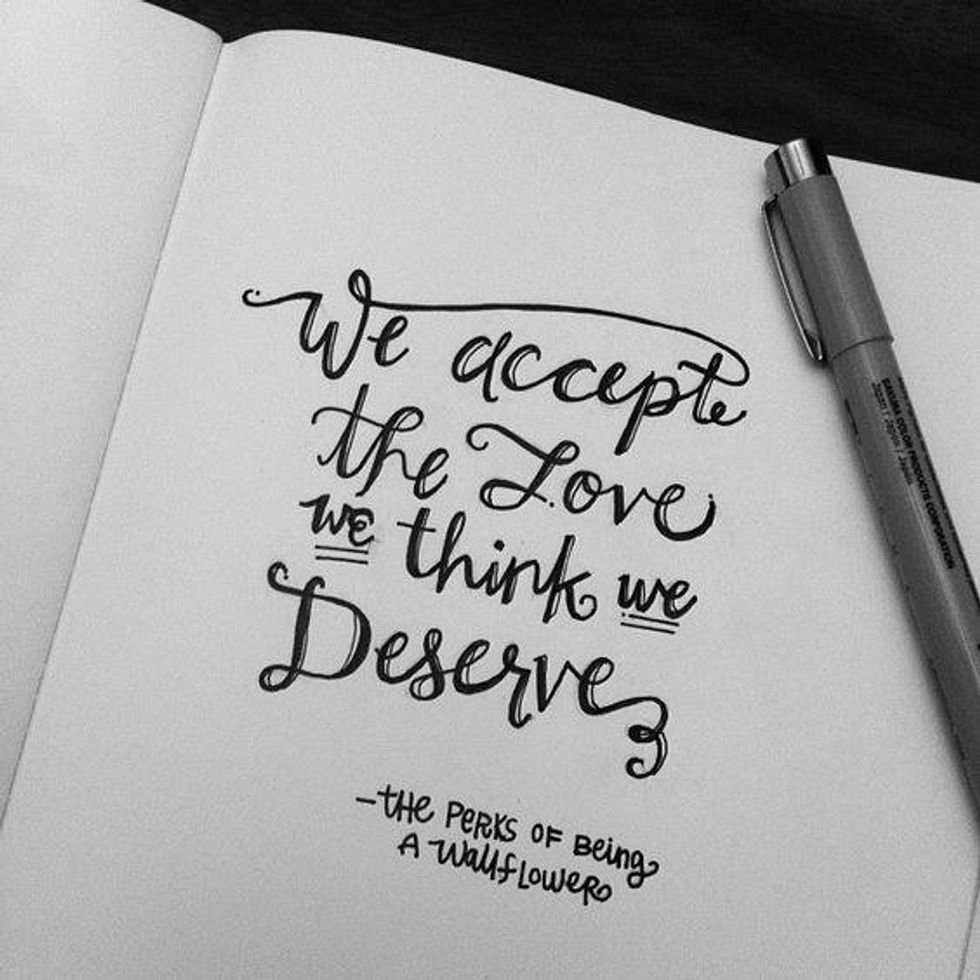 We accept
the Love
we think we
Deserve
-THE PERKS OF Being
A Wallflower
SAKURA COLOR PRODUCTS CORPORATION